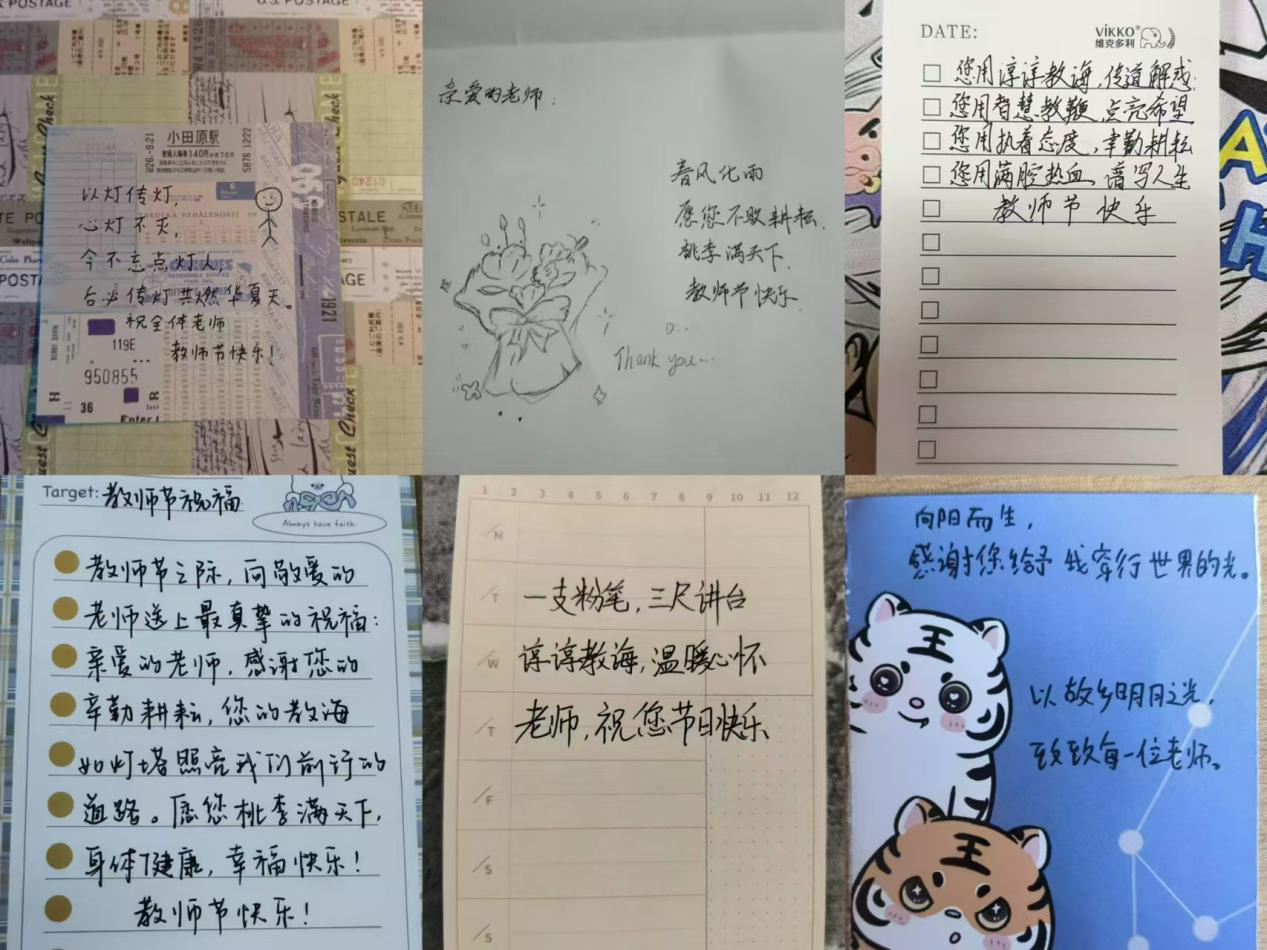 小田原駅
普通入場券 140円
'26.-9.21
5876 1222
6
以灯传灯,
心灯不灭,
今不忘点灯人,
台必传灯共燃华夏天。
祝全体老师
教师节快乐!
119E
950855
H
36
R
1921
亲爱的老师:
春风化雨
愿您不驭耕耘,
桃李满天下.
教师节快乐.
D...
Thank you...
DATE:
ViKKO
维克多利
您用谆谆教诲,传道解惑.
您用智慧教鞭,点亮希望
您用执着态度,聿勤耕耘
您用满腔热血,谱写人生
教师节快乐
Target: 教师节祝福
Always have faith.
教师节之际,向敬爱的
老师送上最真挚的祝福:
亲爱的老师,感谢您的
辛勤耕耘,您的教诲
如灯塔照亮我们前行的
道路。愿您桃李满天下,
身体健康,幸福快乐!
教师节快乐!
1 2 3 4 5 6 7 8 9 10 11 12
/M
/T
一支粉笔,三尺讲台
/W
谆谆教诲,温暖心怀
/T
老师,祝您节日快乐
/F
/S
/S
向阳而生,
感谢您给予我穿行世界的光。
王
以故乡明月之光,
致敬每一位老师。
王